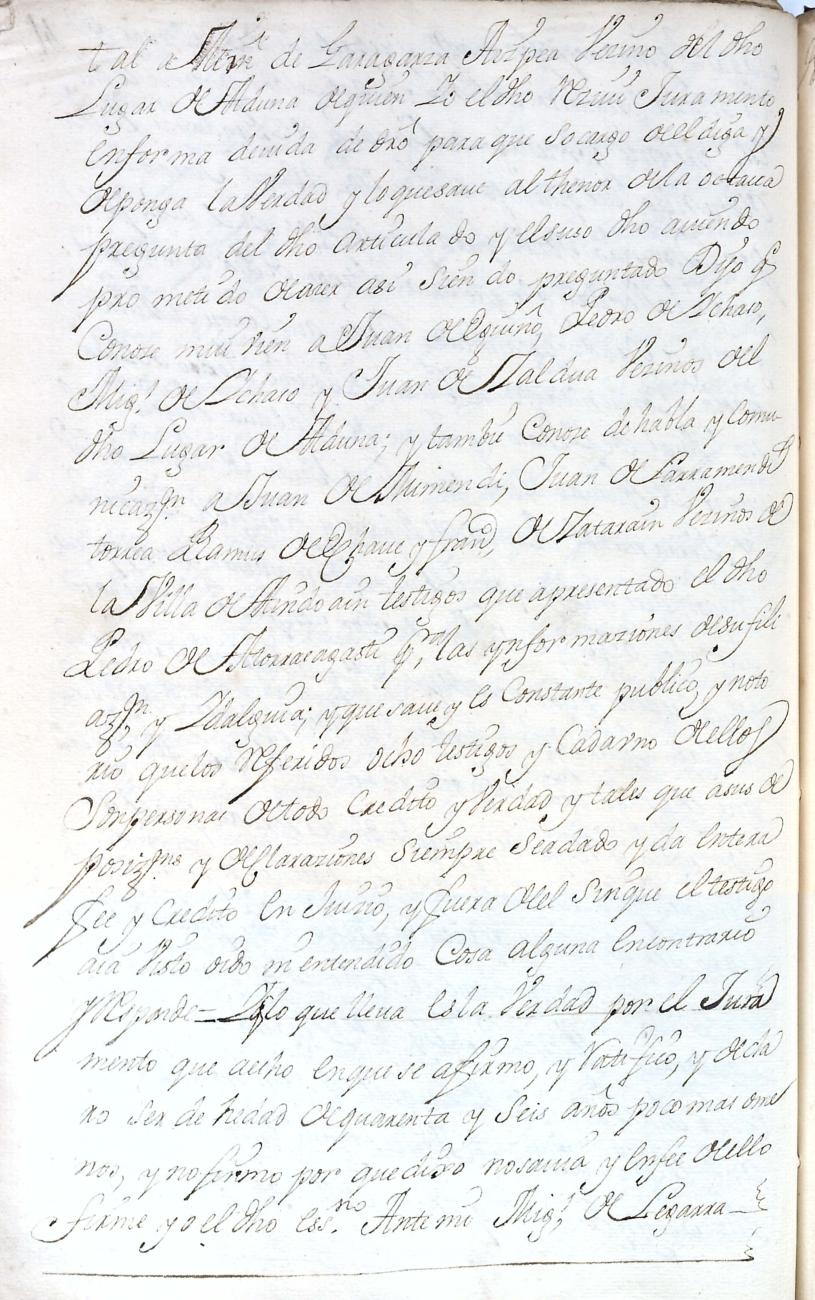 tal a Mrñ de Garagarza Aizpea Vezino del dho
Lugar de Alduna de quien Yo el dho Rezeuí Juramento
en forma deuida de dro para que so cargo de el diga y
deponga la Verdad y lo que saue al thenor de la octaua
pregunta del dho articulado y el suso dho auiendo
prometido de hazer asi siendo preguntado Dijo q
Conoze mui bien a Juan de Eguino, Pedro de Achaso,
Migl de Achaso y Juan de Zaldua Vezinos del
dho Lugar de Alduna; y tambie Conoze de habla y comu-
nicazn a Juan de Mimendi, Juan de Larramendi
torrea Ramus de Echaue y frando de Zatarain Vezinos de
la Villa de Aindoain testigos que apresentado el dho
Pedro de Atorrasagasti pra las ynformaziones de su fili
azn y Ydalguia; y que saue y es Constante publico, y noto
rio que los Referidos ocho testigos y Cada vno de ellos
son personas de todo Credito y Verdad y tales que a sus de
posizns y declaraziones siempre se a dado y da entera
fee y Credito en Juizio, y fuera del sin que el testigo
aia visto oido ni entendido Cosa alguna en contrario
y Responde = Y q lo que lleua es la Verdad por el Jura
mento que a echo en que se afirmo, y Ratifico, y decla
ro ser de hedad de quarenta y seis años poco mas o me
nos, y no firmo por que dixo no sauia y en fee de ello
firme yo el dho essno. Ante mi Migl de Legarra